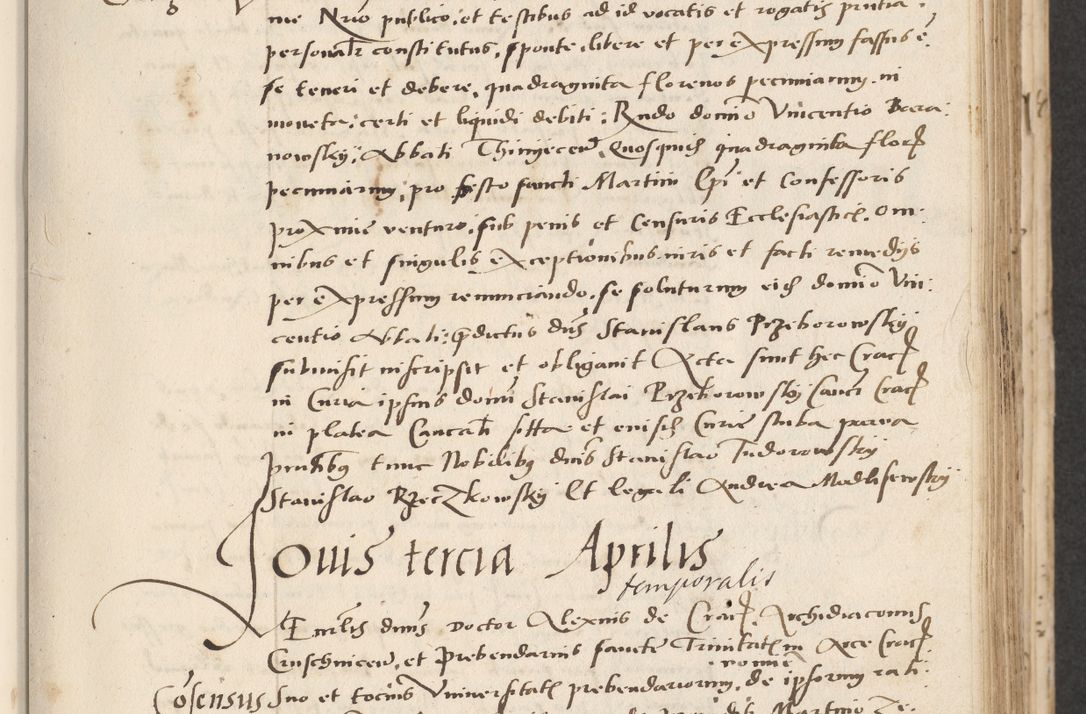 me Nrio publico, et testibus ad id vocatis et rogatis
personalr constitutus, sponte, libere et per expressum fassus e
se teneri et debere, quadraginta florenos pecuniarum in
moneta, certi et liquidi debiti, Rndo domio Vincentio Bara:
nowsky, Abbati quosquid quadraginta flor
pecuniarum, pro festo sancti Martini Epi et Confessoris
proxime venturo, sub penis et Censuris Ecclesiastic. Om:
nibus et singulis exceptionibus iuris et facti remedys
per expressum renunciando, se soluturum eid domio Vin:
centio Abbati, pdictus dns Stanislaus Przeborowsky
submisit inscripsit et obligauit Acta sunt hec Crac
in Curia ipsius domi Stanislai Przeborowsky Canci Crac
in platea sitta et eiusd Curie stuba parva
pntibus tunc Nobilibus dnis Stanislao Tudorowsky
Stanislao Rzeczkowsky Et legali Andrea Modlisewsky
Iouis tercia Aprilis
temporalis
dnus Doctor Alexius de Crac, Archidiaconus
et Prebendarius sancte Trinitatis in Arce Crac
nomie
Cosensus Suo et tocius Vniversitatis prebendariorum, de ipsorum rati
Martino Ze